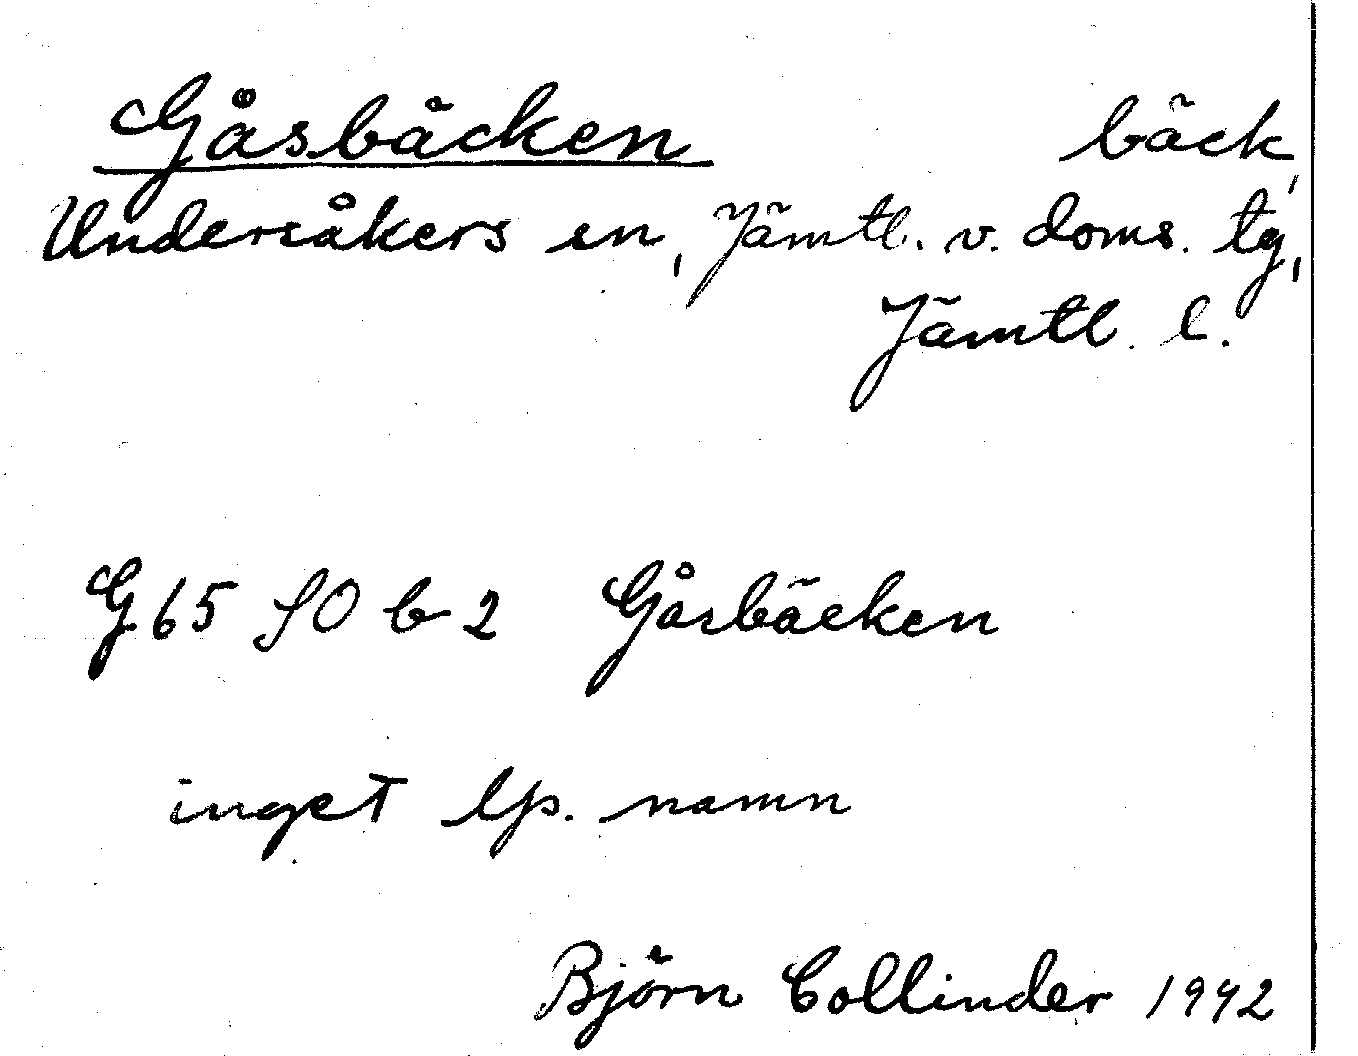 Gåsbäcken bäck,
Undersåkers sn, Jämtl. v. doms. tg,
Jämtl. l.
G 65 SO b 2 Gåsbäcken
inget lp. namn
Björn Collinder 1942